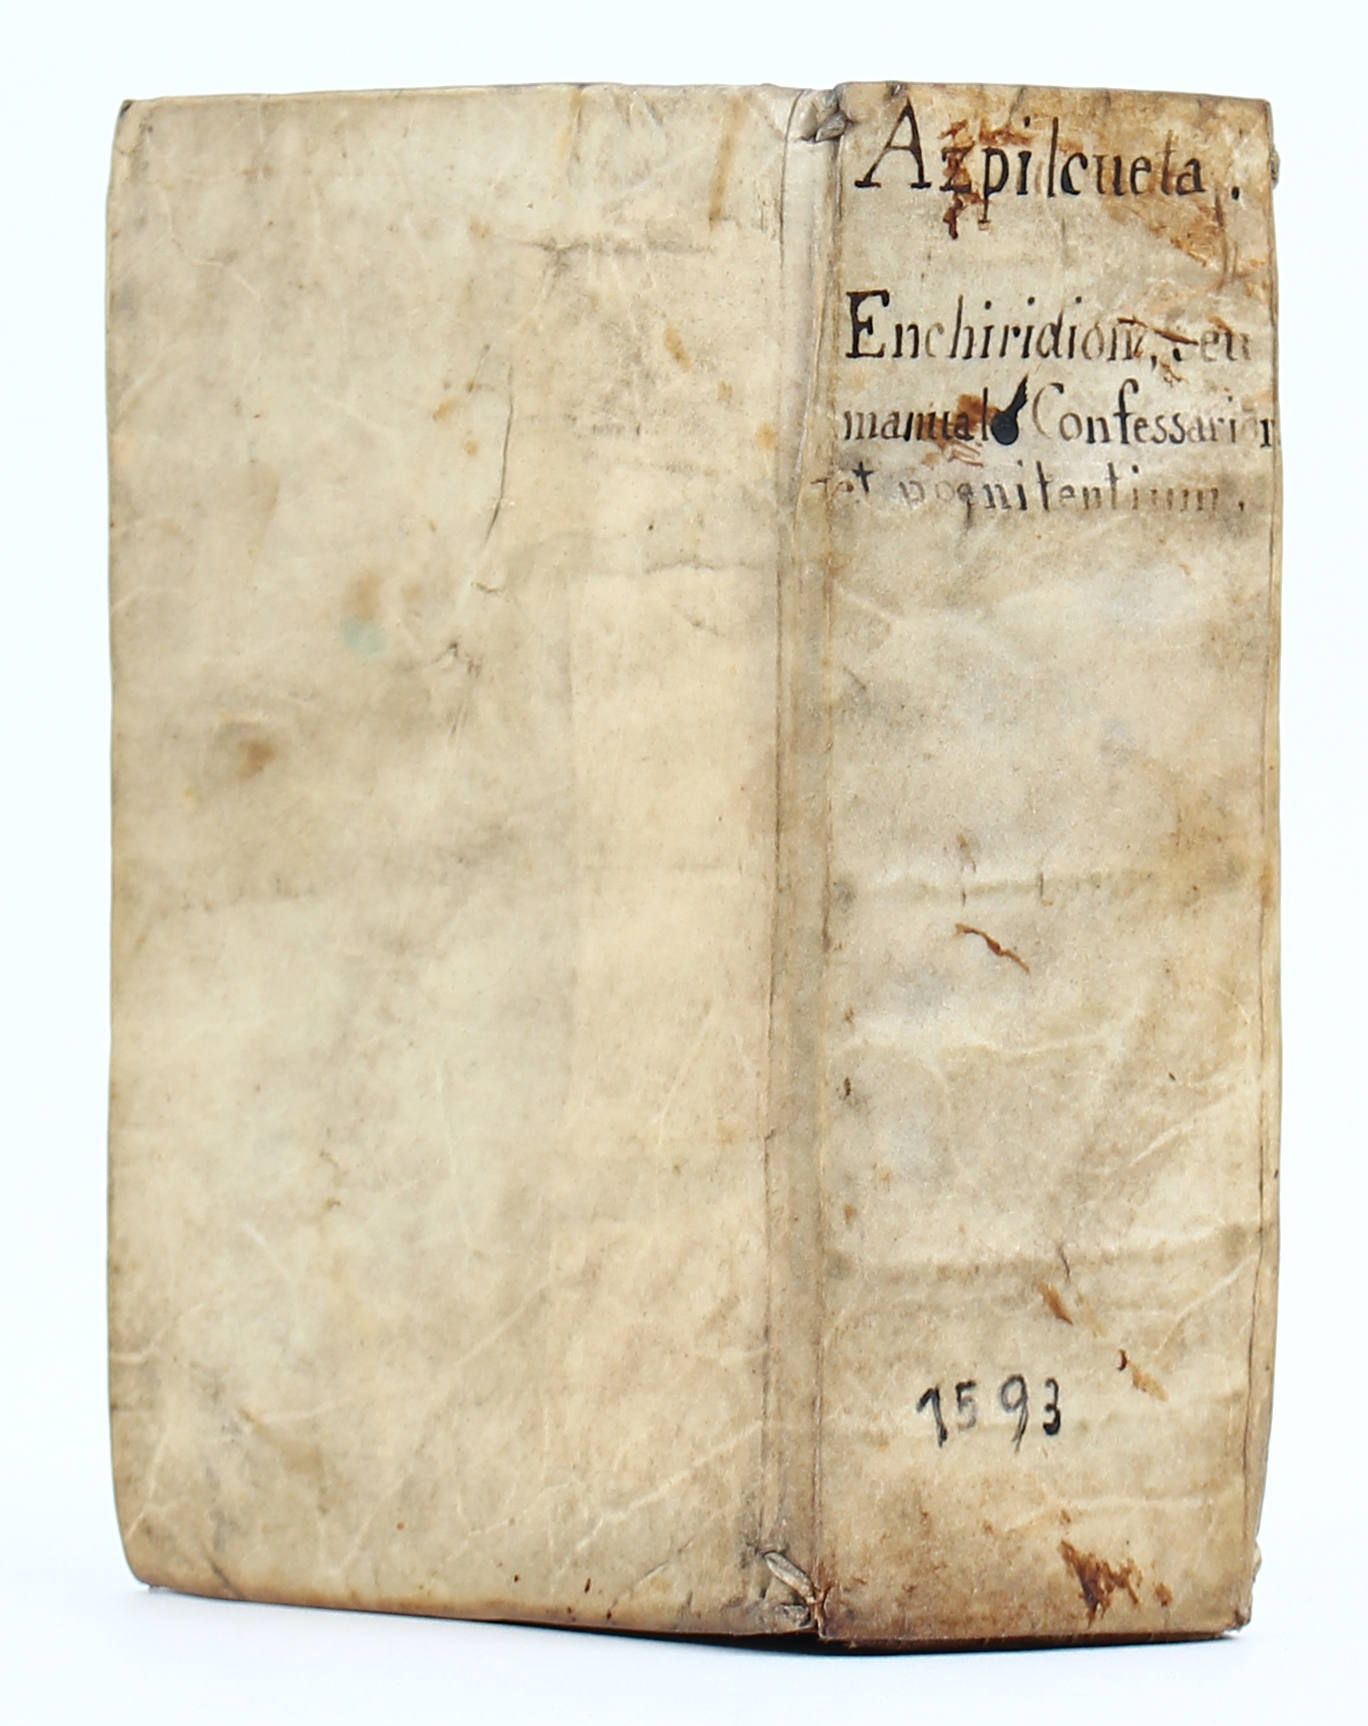 Azpilcueta.
Enchiridion, seu
manual Confessarior
et poenitentium.
1593